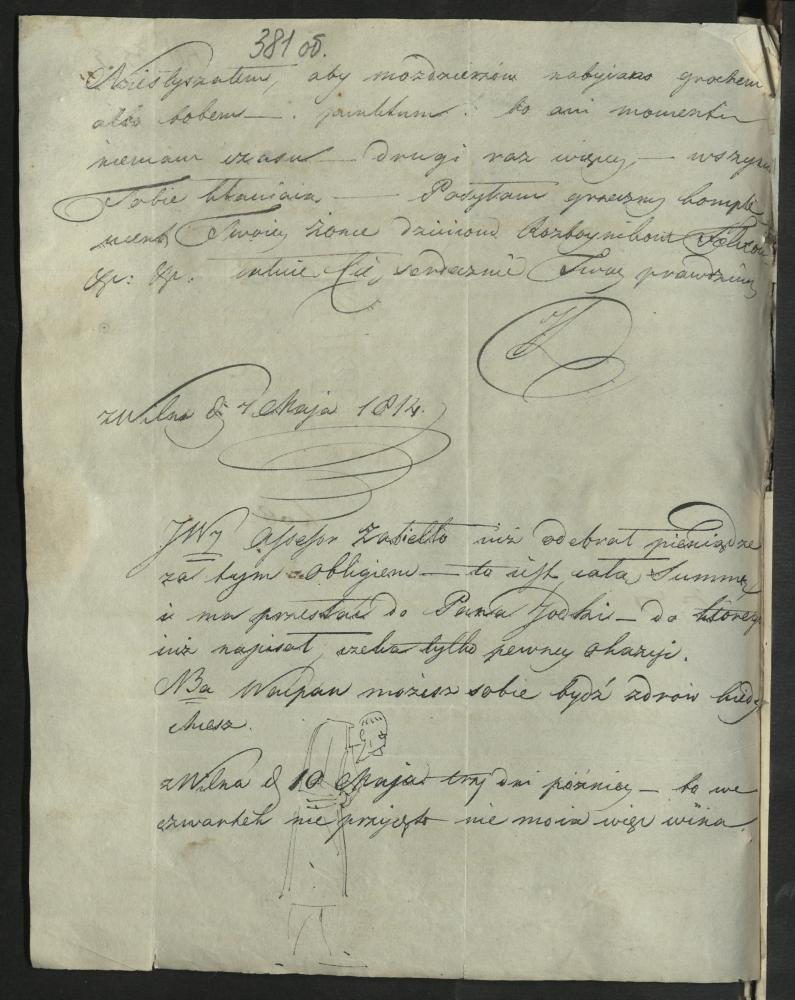 381 об.
Niesłyszałem, aby mozdzierzow nabyiano grochem
albo bobem — . punktum . bo ani momentu
niemam czasu — drugi raz więcey, —
Tobie — Posyłam grzeczny komple
ment Twoiey żonie dzieciom Rozboynikom
&p: &p: Cię serdecznie Twoy prawdziwy
z Wilna d 7 Maja 1814.
JWy Assessor Zabiełło iuż odebrał pieniądze
za tym obligiem — to iest całą Summę
i ma przesłać do Pana Jodki — do którego
iuż napisał, czeka tylko pewney okazyi.
NBa Waćpan możesz sobie bydź zdrów kiedy
chcesz.
z Wilna d 10 Maja trzy dni późniey — bo we
czwartek nie przyjęto nie moia więc wina.